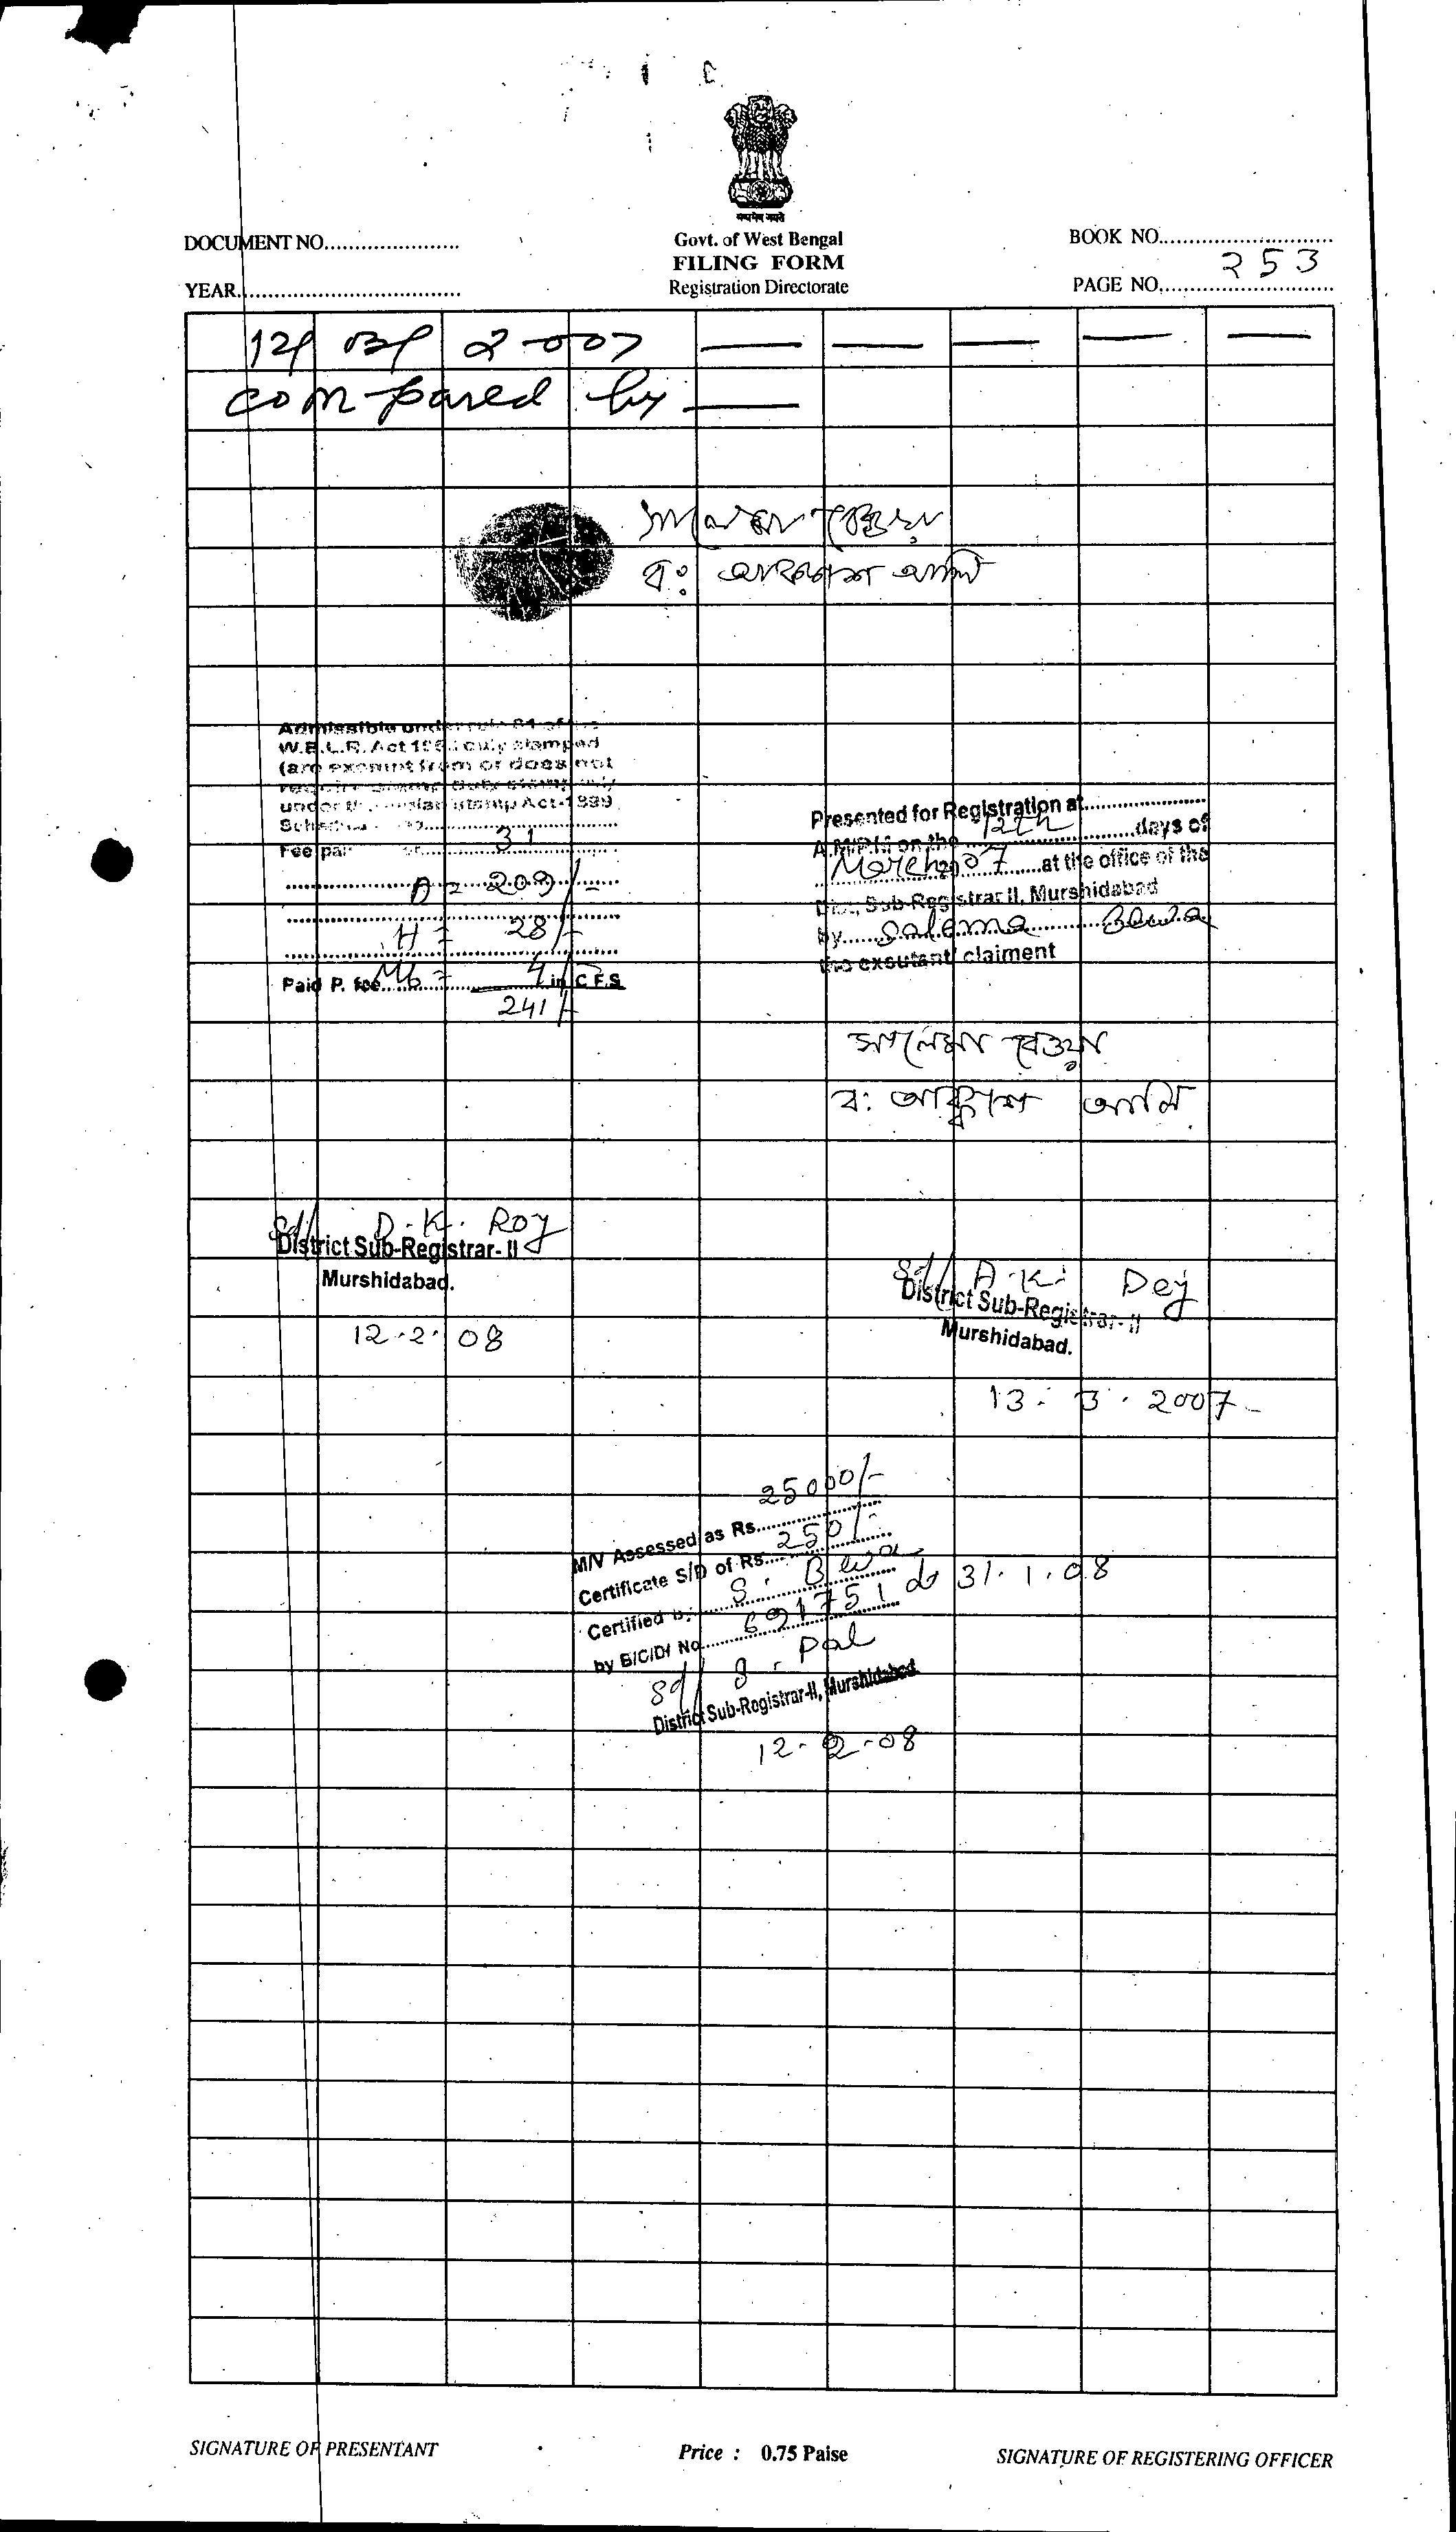 सत्यमेव जयते
Govt. of West Bengal
FILING FORM
Registration Directorate
DOCUMENT NO......................
YEAR....................................
BOOK NO............................
PAGE NO............................ 253
12/ 03/ 2007
compared by
সালেমা বেওয়া
বঃ আক্কাশ আলি
Admissible under rule 21 of the
W.B.L.R. Act duly stamped
(are exempt from or does not
require stamp duty
under the Indian stamp Act-1899
31
Fee paid
A = 209/-
H = 28/-
Paid P. fee Mb = 4/- in C.F.S.
241/-
Presented for Registration at
A.M/P.M on the 12th days of
March 2007 at the office of the
Dist. Sub-Registrar II, Murshidabad
by Salema Bewa
the exsutant/ claiment
সালেমা বেওয়া
ব: আক্কাশ আলি
Sd/ D. K. Roy
District Sub-Registrar- II
Murshidabad.
12.2.08
Sd/ A. K. Dey
District Sub-Registrar- II
Murshidabad.
13. 3. 2007
M/V Assessed as Rs. 25000/-
Certificate S/D of Rs. 250/-
Certified by S. Bewa
by B/C/Df No. 691751 dt 31.1.08
Sd/ S. Pal
District Sub-Registrar-II, Murshidabad.
12-2-08
SIGNATURE OF PRESENTANT
Price : 0.75 Paise
SIGNATURE OF REGISTERING OFFICER